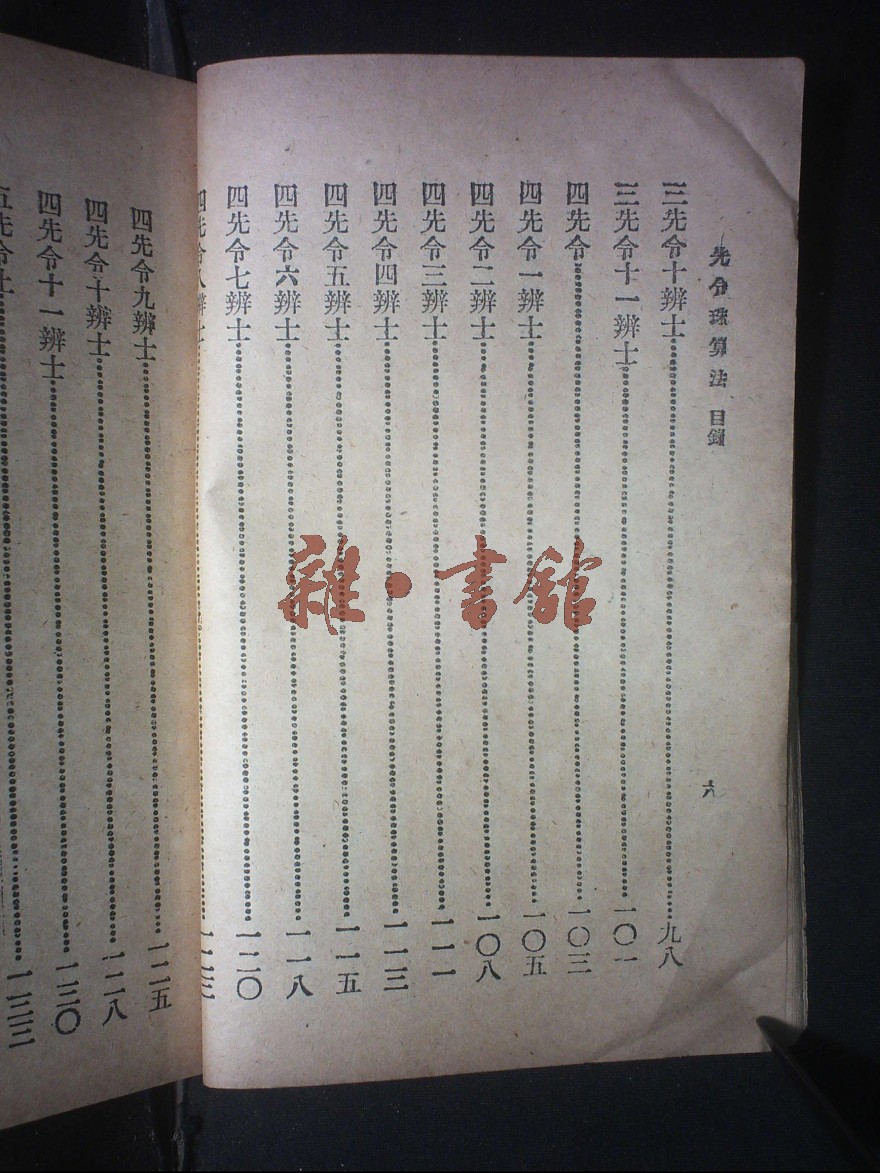 先令珠算法 目錄
六
三先令十辨士……九八
三先令十一辨士……一〇一
四先令……一〇三
四先令一辨士……一〇五
四先令二辨士……一〇八
四先令三辨士……一一一
四先令四辨士……一一三
四先令五辨士……一一五
四先令六辨士……一一八
四先令七辨士……一二〇
四先令八辨士……一二三
四先令九辨士……一二五
四先令十辨士……一二八
四先令十一辨士……一三〇
五先令……一三三
雜·書館